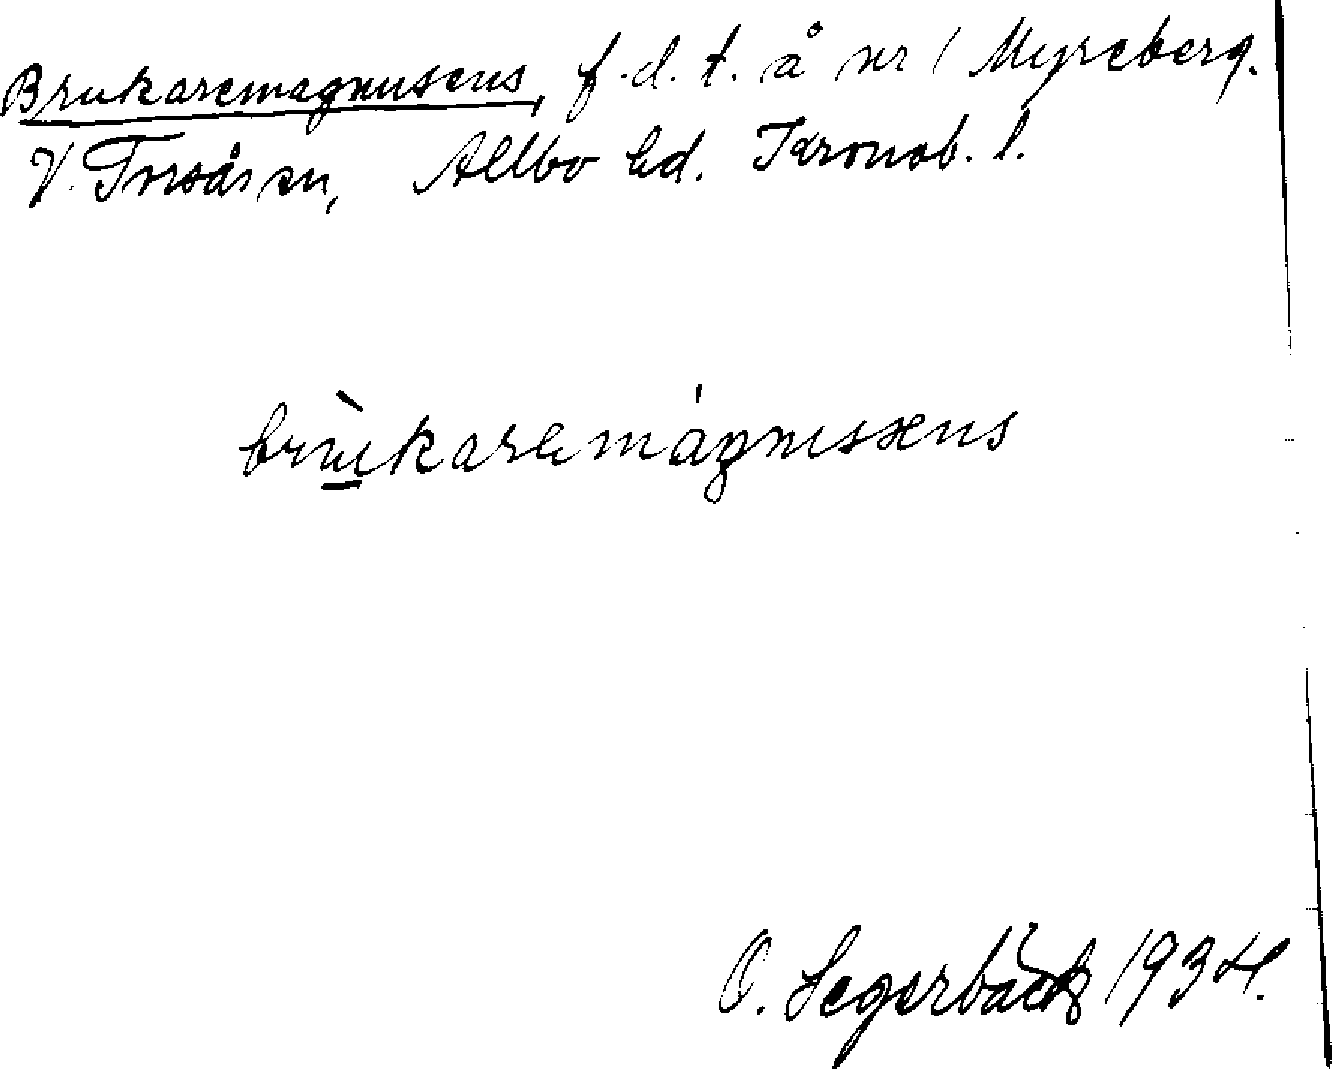 Brukaremagnusens, f.d.t. å nr 1 Myreberg.
V. Torsås sn, Allbo hd. Kronob. l.
brùkaremágnusens
O. Segerbäck 1934.